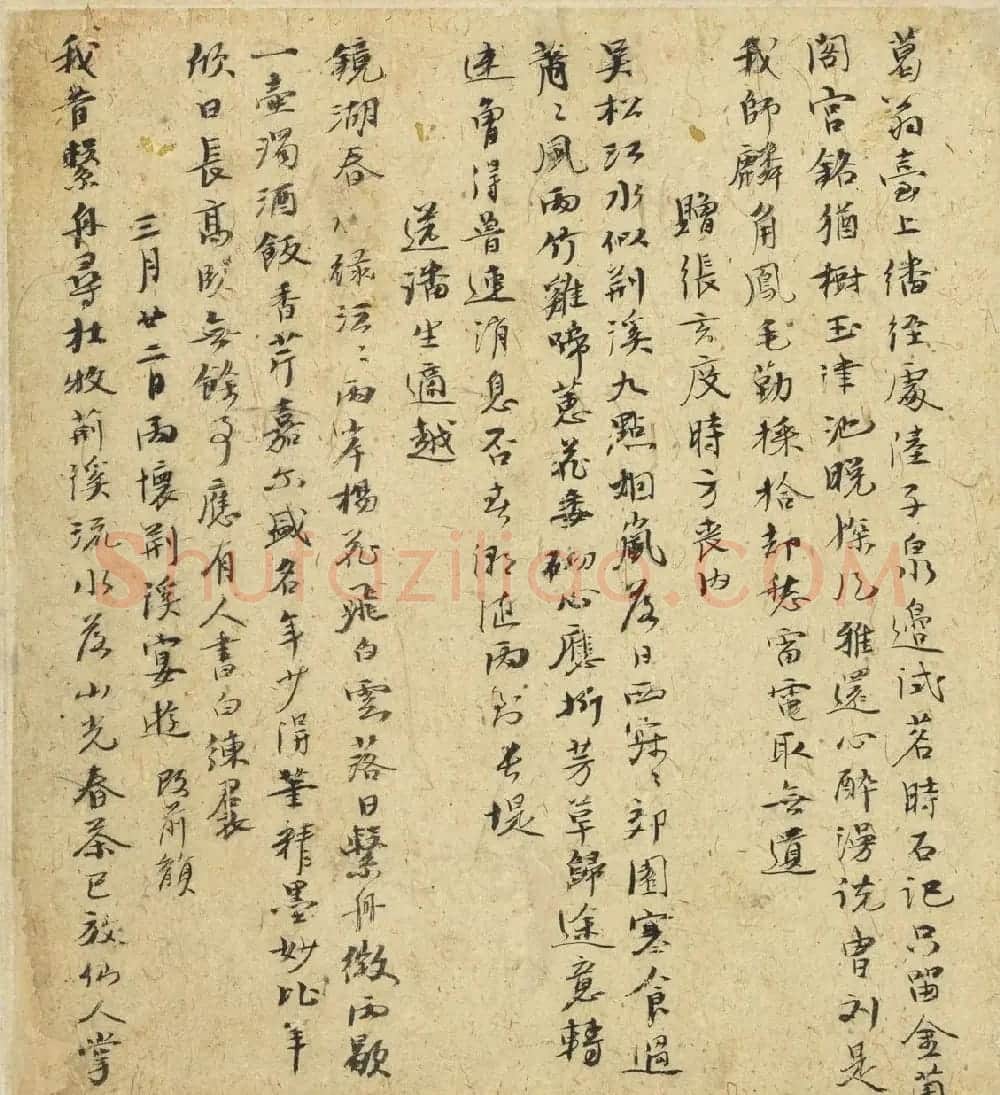 葛翁臺上繙經處陸子泉邊試茗時石記只留金菌
閣宮銘猶樹玉津池晚深几雅還心醉漫説曹刘是
我師麟角鳳毛勤採拾却愁雷電取無遺
贈張玄度時方喪内
吴松江水似荆溪九點烟嵐落日西寂〻郊園寒食過
蕭〻風雨竹雞啼蕙花委砌心應折芳草歸途意轉
迷曾得普連消息否春潮随雨到長堤
送潘生適越
鏡湖春水緑沄〻兩岸楊花飛白雲落日繫舟微雨歇
一壺濁酒飯香芹嘉尔盛名年少得筆精墨妙比羊
欣日長高臥無餘事應有人書白練裙
三月廿二日雨懷荆溪宴遊 改前韻
我昔繫舟尋杜牧荊溪流水落山光春茶已放仙人掌
Shufaziliao.COM